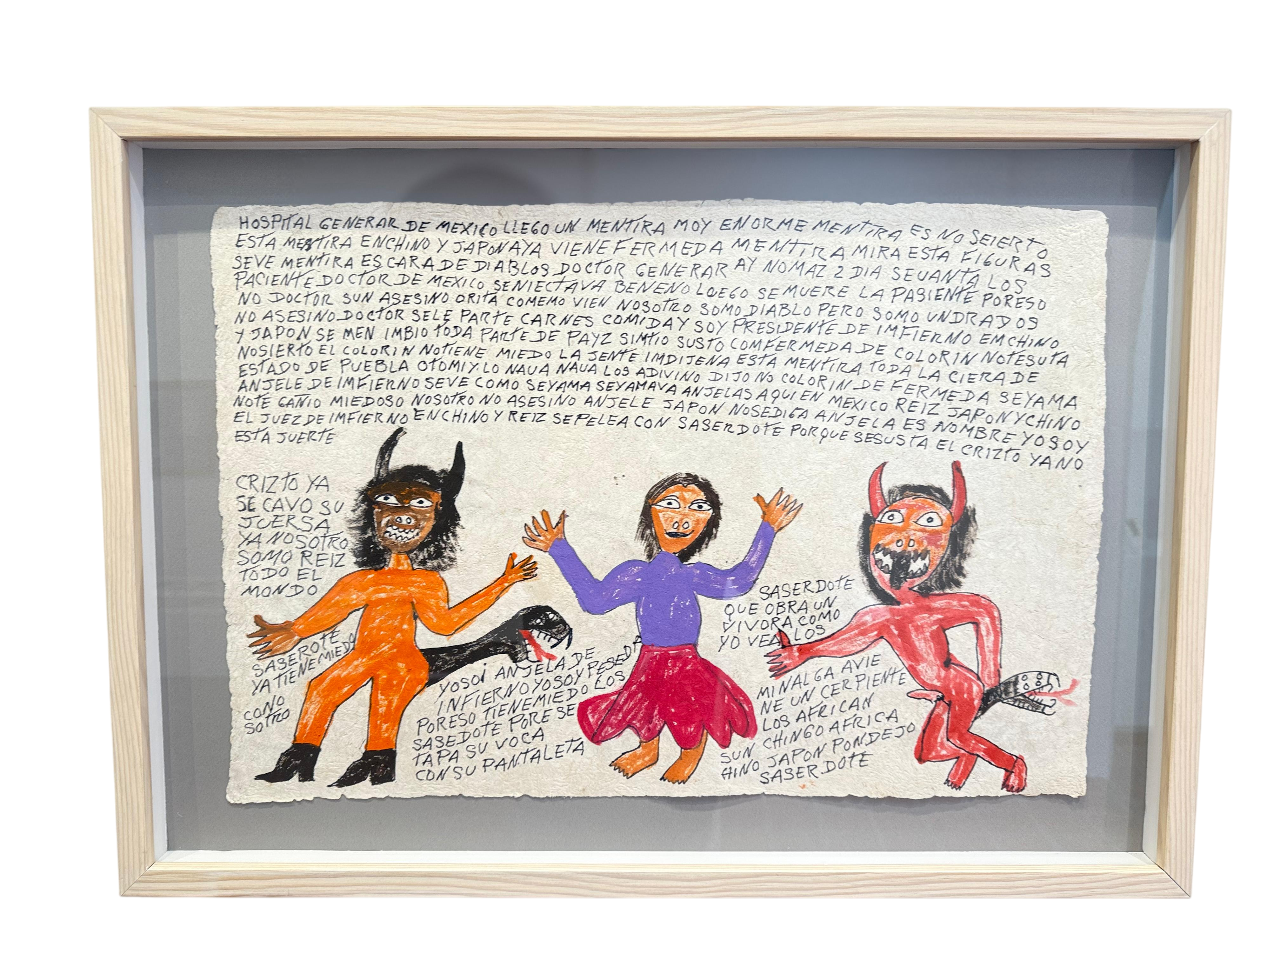 HOSPITAL GENERAR DE MEXICO LLEGO UN MENTIRA MOY ENORME MENTIRA ES NO SEIERTO
ESTA MENTIRA EN CHINO Y JAPON AYA VIENE FERMEDA MENTIRA MIRA ESTA FIGURAS
SEVE MENTIRA ES CARA DE DIABLOS DOCTOR GENERAR AY NOMAZ 2 DIA SEUANTA LOS
PACIENTE DOCTOR DE MEXICO SENIECTAVA BENENO LUEGO SE MUERE LA PASIENTE PORESO
NO DOCTOR SUN ASESINO ORITA COMEMO VIEN NOSOTRO SOMO DIABLO PERO SOMO UNDRADOS
NO ASESINO DOCTOR SELE PARTE CARNES COMIDA Y SOY PRESIDENTE DE IMFIERNO EMCHINO
Y JAPON SE MEN IMBIO TODA PARTE DE PAYZ SIMTIO SUSTO COMFERMEDA DE COLORIN NOTESUTA
NOSIERTO EL COLORIN NOTIENE MIEDO LA JENTE IMDIJENA ESTA MENTIRA TODA LA CIERA DE
ESTADO DE PUEBLA OTOMI Y LO NAUA NAUA LOS ADIVINO DIJO NO COLORIN DE FERMEDA SEYAMA
ANJELE DE IMFIERNO SEVE COMO SEYAMA SEYAMAVA ANJELAS AQUI EN MEXICO REIZ JAPON Y CHINO
NOTE GAÑIO MIEDOSO NOSOTRO NO ASESINO ANJELE JAPON NOSEDIGA ANJELA ES NOMBRE YO SOY
EL JUEZ DE IMFIERNO EN CHINO Y REIZ SE PELEA CON SASERDOTE PORQUE SESUSTA EL CRIZTO YA NO
ESTA JUERTE
CRIZTO YA
SE CAVO SU
JUERSA
YA NOSOTRO
SOMO REIZ
TODO EL
MONDO
SASEROTE
YA TIENE MIEDO
CONO
SOTRO
YOSOI ANJELA DE
INFIERNO YOSOY PESEDA
PORESO TIENE MIEDO LOS
SASEDOTE PORE SE
TAPA SU VOCA
CON SU PANTALETA
SASERDOTE
QUE OBRA UN
VIVORA COMO
YO VEA LOS
MINALGA AVIE
NE UN CERPIENTE
LOS AFRICAN
SUN CHINGO AFRICA
HINO JAPON PONDEJO
SASERDOTE